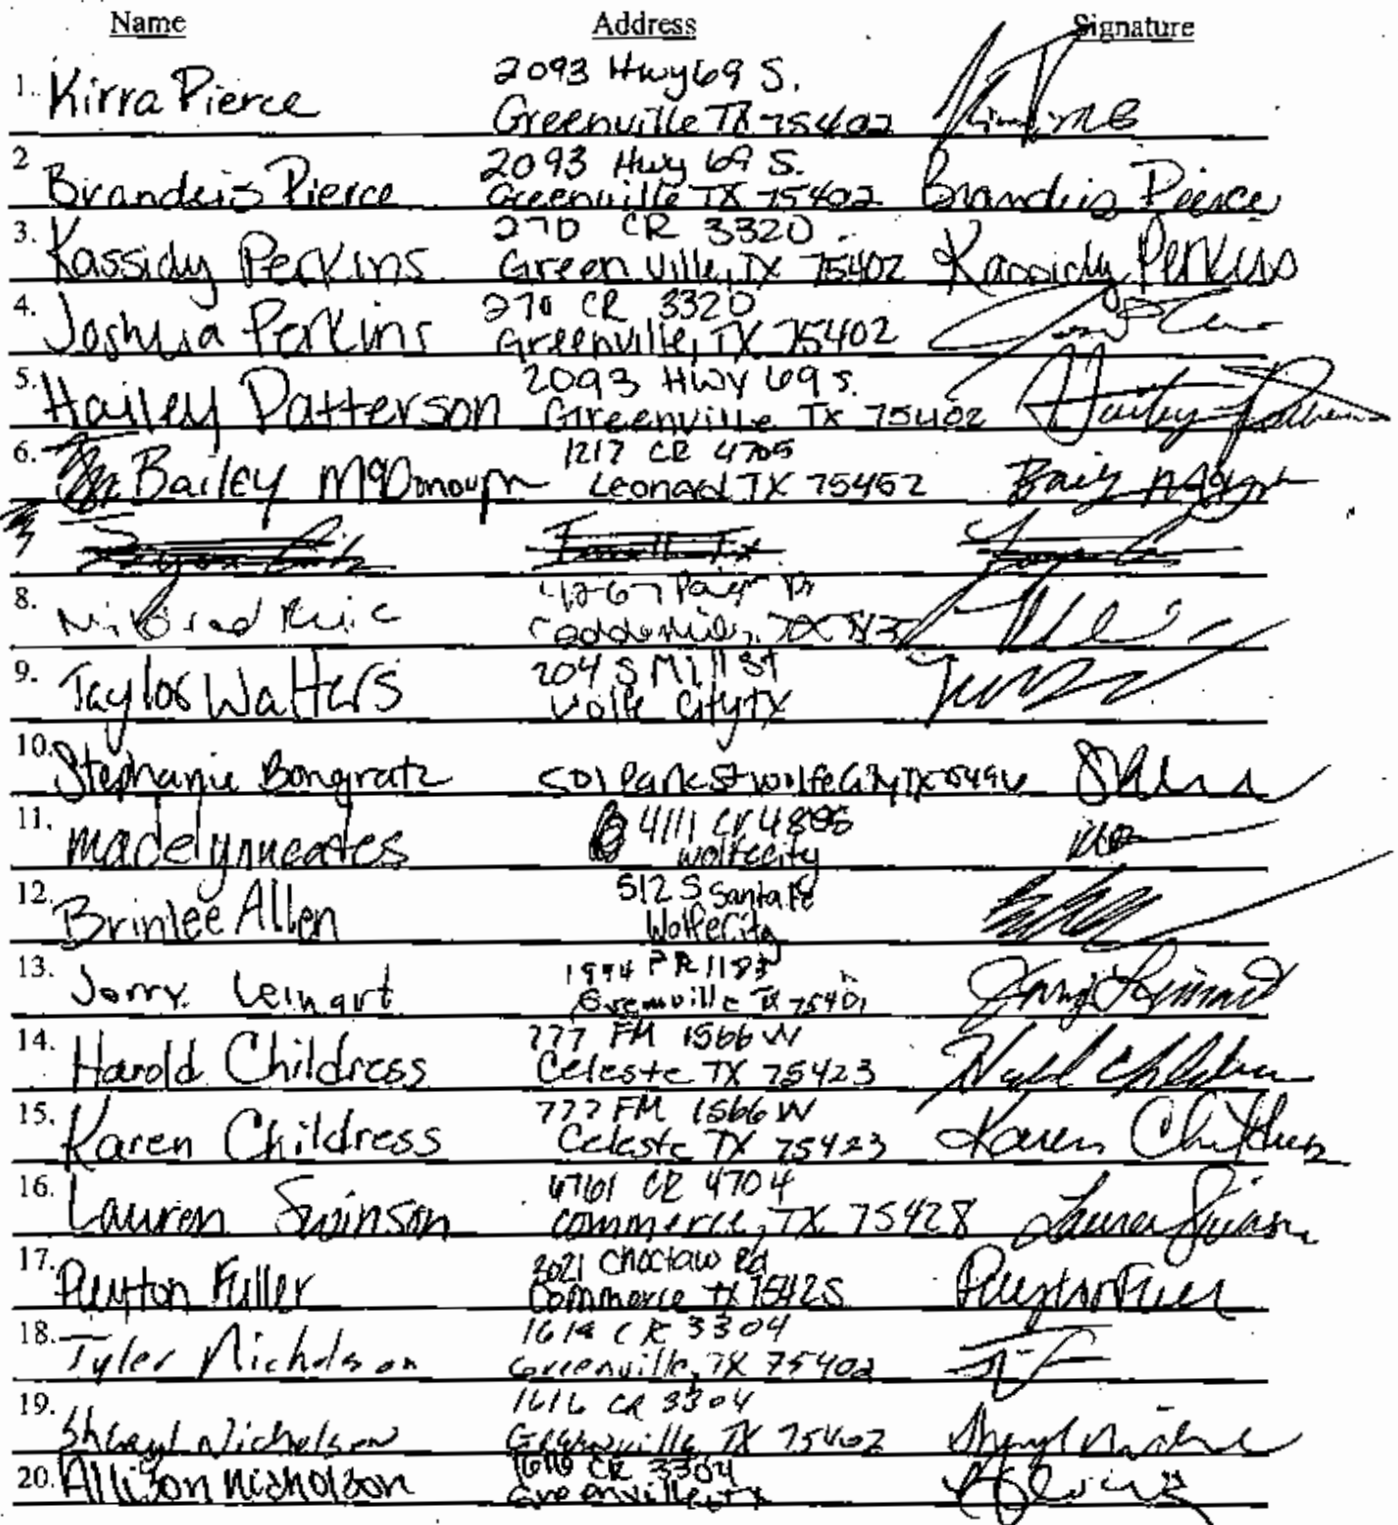 Name Address Signature
1. Kirra Pierce 2093 Hwy 69 S.
Greenville TX 75402
2 Brandeis Pierce 2093 Hwy 69 S.
Greenville TX 75402 Brandeis Pierce
3. Kassidy Perkins 270 CR 3320
Greenville, TX 75402 Kassidy Perkins
4. Joshua Perkins 270 CR 3320
Greenville, TX 75402
5. Hailey Patterson 2093 HWY 69 S.
Greenville TX 75402
6. Bailey McDonough 1217 CR 4705
Leonard TX 75452
8.
9. Taylor Walters 204 S Mill St
Wolfe City TX
10. Stephanie Bongratz 501 Park St Wolfe City TX
11. madelynneates 4111 cr
wolfecity
12. Brinlee Allen 512 S Santa Fe
Wolfe City
13. Jerry Leinart PR
Greenville TX 75401
14. Harold Childress 777 FM 1566 W
Celeste TX 75423 Harold Childress
15. Karen Childress 777 FM 1566 W
Celeste TX 75423 Karen Childress
16. Lauren Swinson CR 4704
commerce, TX 75428 Lauren Swinson
17. Peyton Fuller 2021 Choctaw Rd
Commerce tx Peyton Fuller
18. Tyler Nicholson CR 3304
Greenville, TX 75402
19. Sheryl Nicholson 1616 CR 3304
Greenville TX 75402
20. Allison Nicholson 1616 CR 3304
Greenville, tx